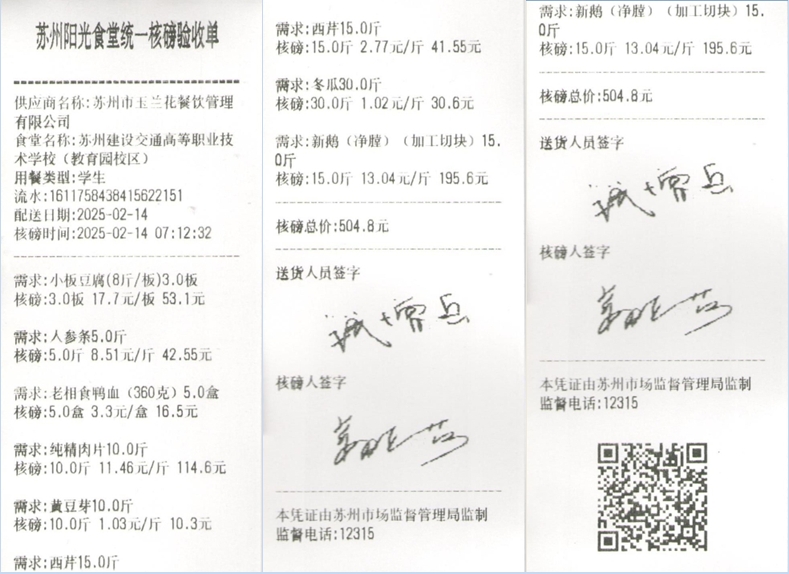 苏州阳光食堂统一核磅验收单
供应商名称:苏州市玉兰花餐饮管理
有限公司
食堂名称:苏州建设交通高等职业技
术学校（教育园校区）
用餐类型:学生
流水:1611758438415622151
配送日期:2025-02-14
核磅时间:2025-02-14 07:12:32
需求:小板豆腐(8斤/板)3.0板
核磅:3.0板 17.7元/板 53.1元
需求:人参条5.0斤
核磅:5.0斤 8.51元/斤 42.55元
需求:老相食鸭血（360克）5.0盒
核磅:5.0盒 3.3元/盒 16.5元
需求:纯精肉片10.0斤
核磅:10.0斤 11.46元/斤 114.6元
需求:黄豆芽10.0斤
核磅:10.0斤 1.03元/斤 10.3元
需求:西芹15.0斤
需求:西芹15.0斤
核磅:15.0斤 2.77元/斤 41.55元
需求:冬瓜30.0斤
核磅:30.0斤 1.02元/斤 30.6元
需求:新鹅（净膛）（加工切块）15.
0斤
核磅:15.0斤 13.04元/斤 195.6元
核磅总价:504.8元
送货人员签字
核磅人签字
本凭证由苏州市场监督管理局监制
监督电话:12315
需求:新鹅（净膛）（加工切块）15.
0斤
核磅:15.0斤 13.04元/斤 195.6元
核磅总价:504.8元
送货人员签字
核磅人签字
本凭证由苏州市场监督管理局监制
监督电话:12315